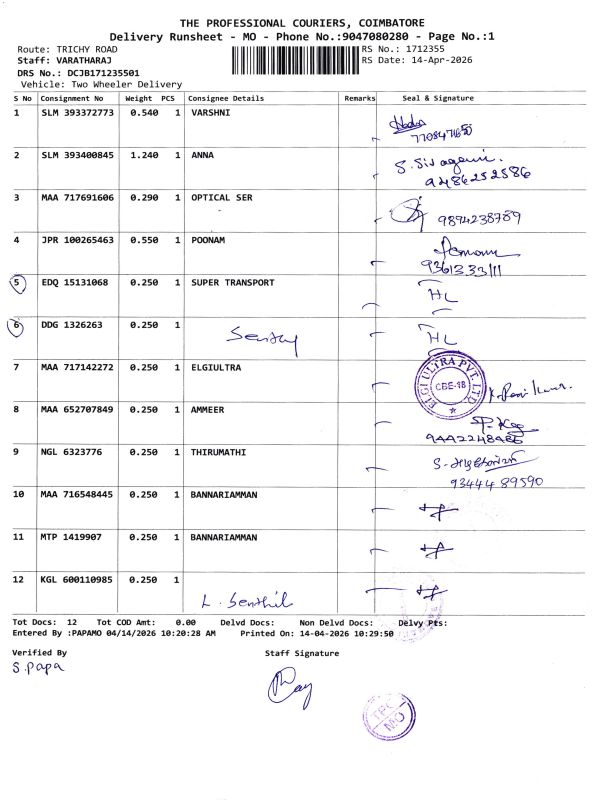 THE PROFESSIONAL COURIERS, COIMBATORE
Delivery Runsheet - MO - Phone No.:9047080280 - Page No.:1
Route: TRICHY ROAD RS No.: 1712355
Staff: VARATHARAJ RS Date: 14-Apr-2026
DRS No.: DCJB171235501
Vehicle: Two Wheeler Delivery
S No Consignment No Weight PCS Consignee Details Remarks Seal & Signature
1 SLM 393372773 0.540 1 VARSHNI
2 SLM 393400845 1.240 1 ANNA
9486252586
3 MAA 717691606 0.290 1 OPTICAL SER
9894238789
4 JPR 100265463 0.550 1 POONAM
5 EDQ 15131068 0.250 1 SUPER TRANSPORT HL
6 DDG 1326263 0.250 1 HL
7 MAA 717142272 0.250 1 ELGIULTRA
ELGI ULTRA PVT. LTD. CBE-18
8 MAA 652707849 0.250 1 AMMEER
9 NGL 6323776 0.250 1 THIRUMATHI
93444 89590
10 MAA 716548445 0.250 1 BANNARIAMMAN
11 MTP 1419907 0.250 1 BANNARIAMMAN
12 KGL 600110985 0.250 1
L. Senthil
Tot Docs: 12 Tot COD Amt: 0.00 Delvd Docs: Non Delvd Docs: Delvy Pts:
Entered By :PAPAMO 04/14/2026 10:20:28 AM Printed On: 14-04-2026 10:29:50
Verified By Staff Signature
S. Papa
TPC
MO